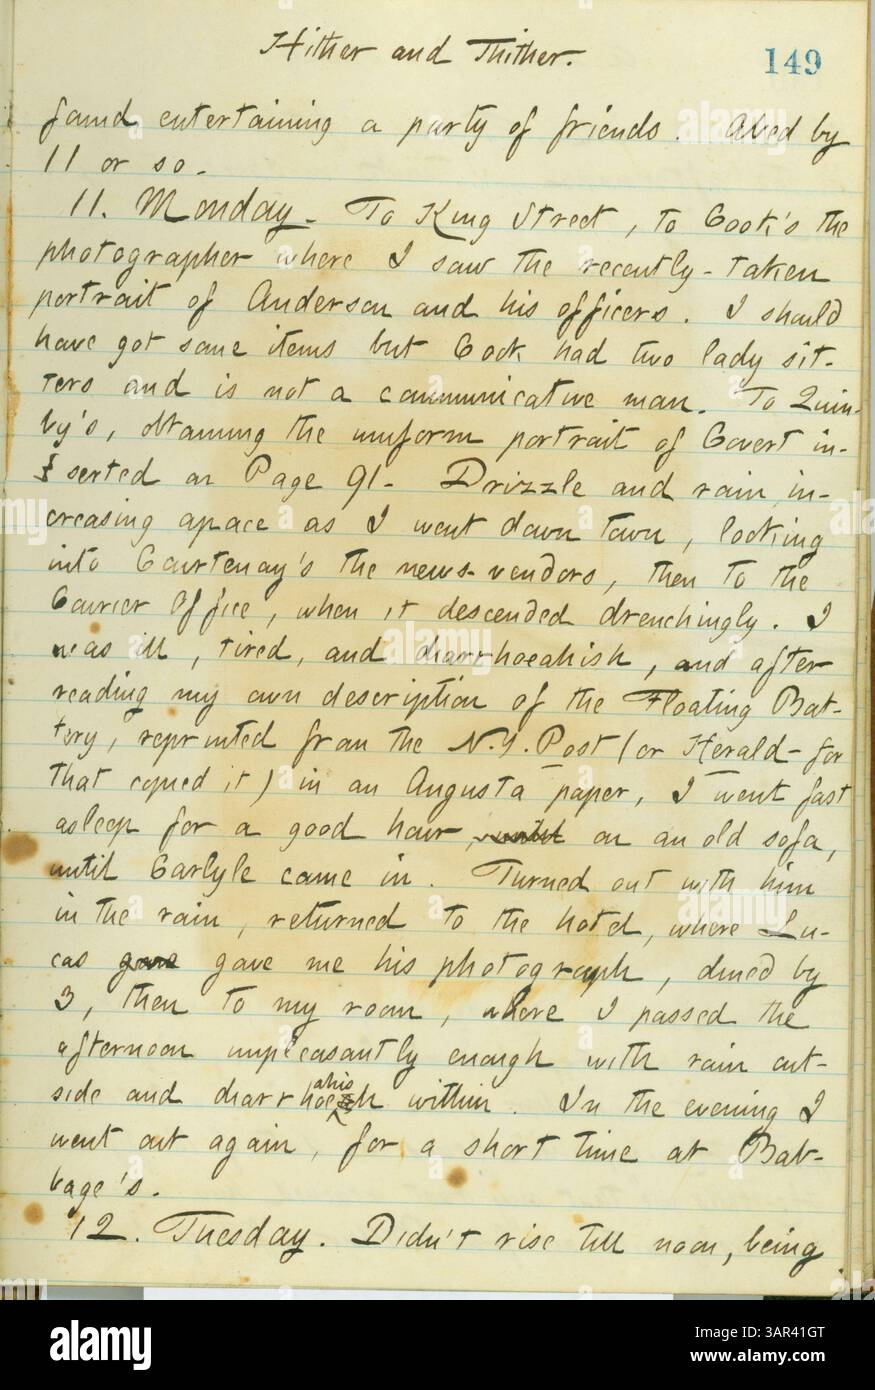 Hither and Thither.
149
found entertaining a party of friends. Abed by
11 or so.
11. Monday. To King Street, to Cook's the
photographer where I saw the recently-taken
portrait of Anderson and his officers. I should
have got some items but Cook had two lady sit-
ters and is not a communicative man. To Quin-
by's, obtaining the uniform portrait of Covert in-
serted on Page 91. Drizzle and rain in-
creasing apace as I went down town, looking
into Courtenay's the news-vendors, then to the
Courier Office, when it descended drenchingly. I
was ill, tired, and diarrhoeahish, and after
reading my own description of the Floating Bat-
tery, reprinted from the N.Y. Post (or Herald-for
that copied it) in an Augusta paper, I went fast
asleep for a good hour, until on an old sofa,
until Carlyle came in. Turned out with him
in the rain, returned to the hotel, where Lu-
cas gave gave me his photograph, dined by
3, then to my room, where I passed the
afternoon unpleasantly enough with rain out-
side and diarrhoeahish within. In the evening I
went out again, for a short time at Bab-
bage's.
12. Tuesday. Didn't rise till noon, being
alamy
Image ID: 3AR41GT
www.alamy.com